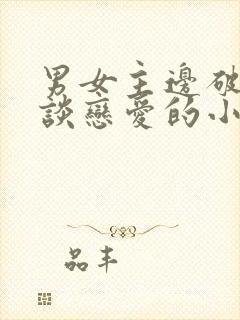 男女主邊破
談戀愛的小
品丰